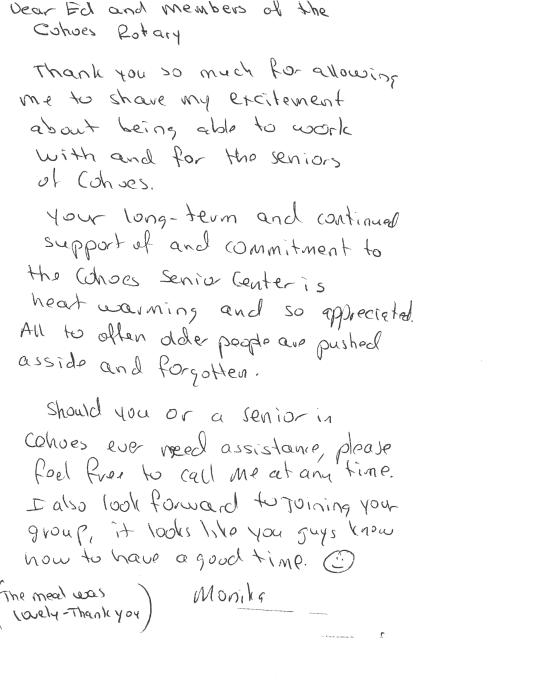 Dear Ed and members of the
Cohoes Rotary
Thank you so much for allowing
me to share my excitement
about being able to work
with and for the seniors
of Cohoes.
Your long-term and continued
support of and commitment to
the Cohoes Senior Center is
heat warming and so appreciated.
All to often older people are pushed
asside and forgotten.
Should you or a senior in
Cohoes ever need assistance, please
feel free to call me at any time.
I also look forward to joining your
group, it looks like you guys know
how to have a good time. ☺
(The meal was
lovely-Thank you)
Monika